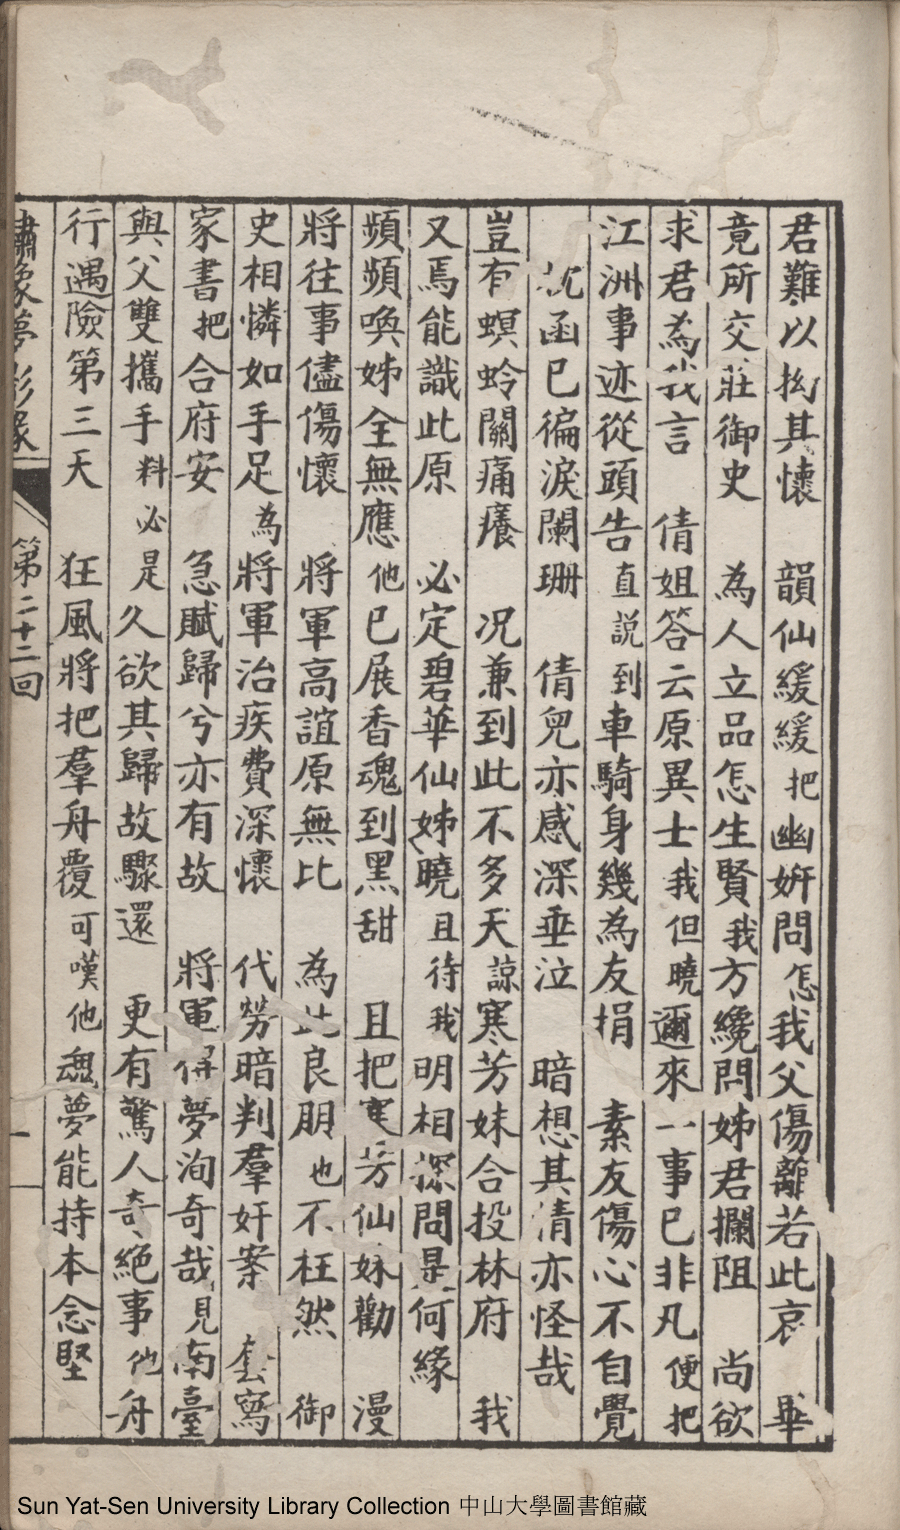 君難以拗其懷　韻仙緩緩把幽妍問怎我父傷離若此哀　畢
竟所交莊御史　為人立品怎生賢我方纔問姊君攔阻　尚欲
求君為我言　倩姐答云原異士我但曉邇來一事已非凡便把
江洲事迹從頭告直説到車騎身幾為友捐　素友傷心不自覺
函已徧淚闌珊　倩兒亦感深垂泣　暗想其情亦怪哉
豈有螟蛉關痛癢　况兼到此不多天諒寒芳妹合投林府　我
又焉能識此原　必定碧華仙姊曉且待我明相探問是何緣
頻頻喚姊全無應他已展香魂到黑甜　且把寒芳仙妹勸　漫
將往事儘傷懷　將軍高誼原無比　為此良朋也不枉然　御
史相憐如手足為將軍治疾費深懷　代勞暗判羣奸案　套寫
家書把合府安　急賦歸兮亦有故　將軍得夢洵奇哉見南臺
與父雙攜手料必是久欲其歸故驟還　更有驚人奇絕事他舟
行遇險第三天　狂風將把羣舟覆可嘆他魂夢能持本念堅
繡像夢影緣　第二十二回　一
Sun Yat-Sen University Library Collection 中山大學圖書館藏